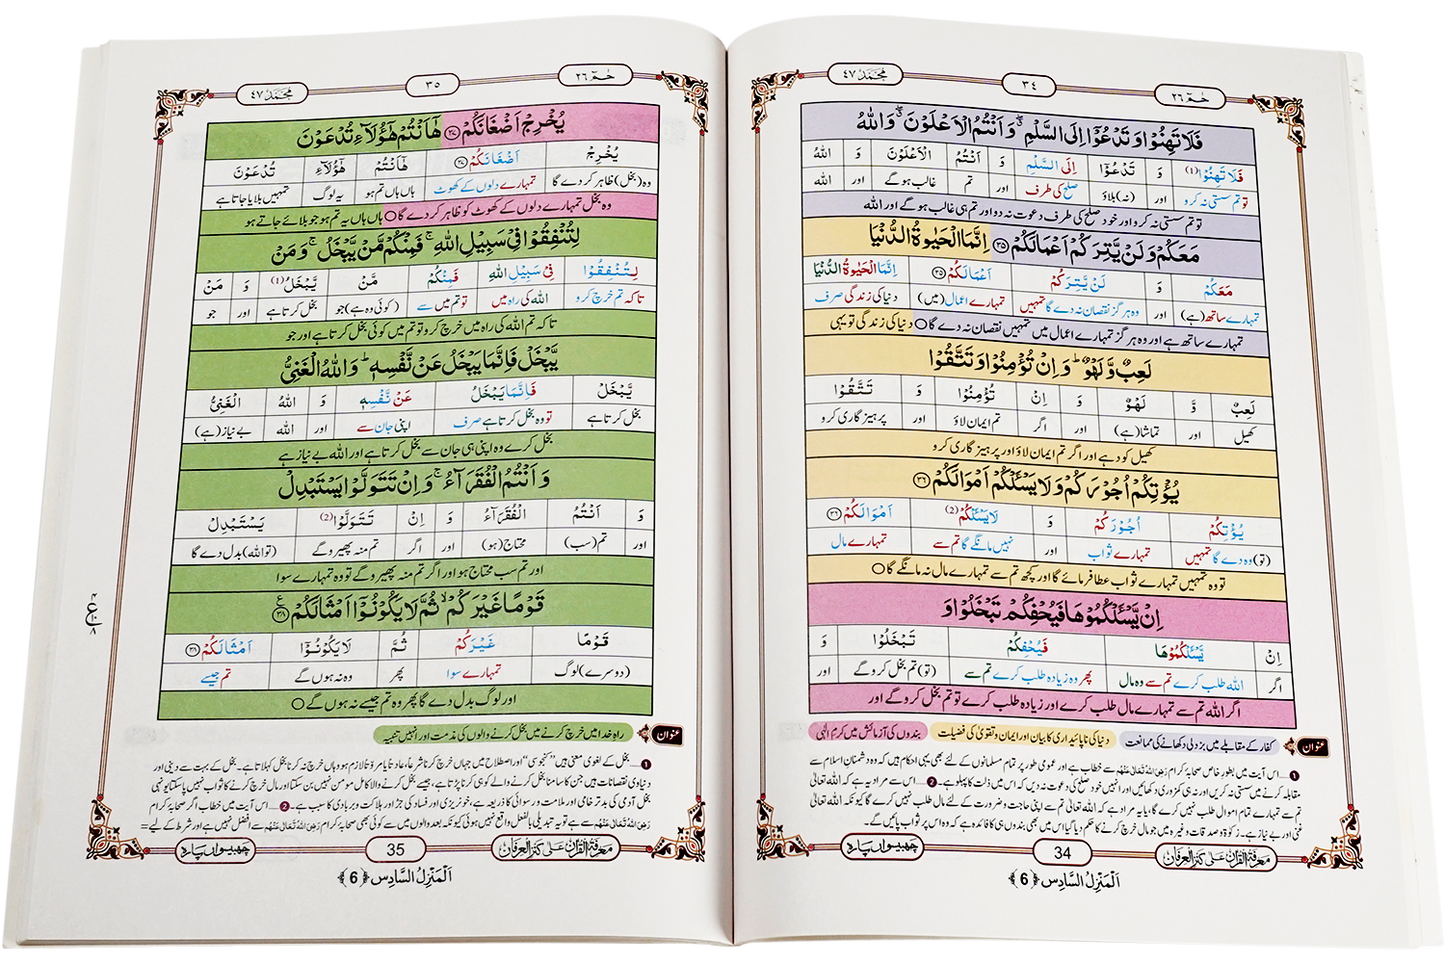 حٰمٓ ٢٦
٣٤
مُحَمَّد ٤٧
فَلَا تَهِنُوْا وَ تَدْعُوْۤا اِلَى السَّلْمِ ۖ وَ اَنْتُمُ الْاَعْلَوْنَ ۖ وَ اللّٰهُ
فَلَا تَهِنُوْا(1) وَ تَدْعُوْۤا اِلَى السَّلْمِ وَ اَنْتُمُ الْاَعْلَوْنَ وَ اللّٰهُ
تو تم سستی نہ کرو اور (نہ) بلاؤ صلح کی طرف اور تم غالب ہوگے اور اللہ
تو تم سستی نہ کرو اور خود صلح کی طرف دعوت نہ دو اور تم ہی غالب ہوگے اور اللہ
مَعَكُمْ وَ لَنْ یَّتِرَكُمْ اَعْمَالَكُمْ ﴿٣٥﴾ اِنَّمَا الْحَیٰوةُ الدُّنْیَا
مَعَكُمْ وَ لَنْ یَّتِرَكُمْ اَعْمَالَكُمْ ﴿٣٥﴾ اِنَّمَا الْحَیٰوةُ الدُّنْیَا
تمہارے ساتھ (ہے) اور وہ ہرگز نقصان نہ دے گا تمہیں تمہارے اعمال (میں) دنیا کی زندگی صرف
تمہارے ساتھ ہے اور وہ ہرگز تمہارے اعمال میں تمہیں نقصان نہ دے گا ○ دنیا کی زندگی تو یہی
لَعِبٌ وَّ لَهْوٌ ؕ وَ اِنْ تُؤْمِنُوْا وَ تَتَّقُوْا
لَعِبٌ وَّ لَهْوٌ وَ اِنْ تُؤْمِنُوْا وَ تَتَّقُوْا
کھیل اور تماشا (ہے) اور اگر تم ایمان لاؤ اور پرہیزگاری کرو
کھیل کود ہے اور اگر تم ایمان لاؤ اور پرہیزگاری کرو
یُؤْتِكُمْ اُجُوْرَكُمْ وَ لَا یَسْـَٔلْكُمْ اَمْوَالَكُمْ ﴿٣٦﴾
یُؤْتِكُمْ اُجُوْرَكُمْ وَ لَا یَسْـَٔلْكُمْ(2) اَمْوَالَكُمْ ﴿٣٦﴾
(تو) وہ دے گا تمہیں تمہارے ثواب اور نہیں مانگے گا تم سے تمہارے مال
تو وہ تمہیں تمہارے ثواب عطا فرمائے گا اور کچھ تم سے تمہارے مال نہ مانگے گا ○
اِنْ یَّسْـَٔلْكُمُوْهَا فَیُحْفِكُمْ تَبْخَلُوْا وَ
اِنْ یَّسْـَٔلْكُمُوْهَا فَیُحْفِكُمْ تَبْخَلُوْا وَ
اگر اللہ طلب کرے تم سے وہ مال پھر وہ زیادہ طلب کرے تم سے (تو) تم بخل کروگے اور
اگر اللہ تم سے تمہارے مال طلب کرے اور زیادہ طلب کرے تو تم بخل کروگے اور
عنوان کفار کے مقابلے میں بزدلی دکھانے کی ممانعت دنیا کی ناپائیداری کا بیان اور ایمان و تقویٰ کی فضیلت بندوں کی آزمائش میں کرم الٰہی
1…اس آیت میں بطور خاص صحابہ کرام رَضِیَ اللہُ تَعَالٰی عَنْہُم سے خطاب ہے اور عمومی طور پر تمام مسلمانوں کے لئے بھی یہی احکام ہیں کہ وہ دشمنانِ اسلام سے
مقابلہ کرنے میں سستی نہ کریں اور نہ ہی کمزوری دکھائیں اور انہیں خود صلح کی دعوت نہ دیں کہ اس میں ذلت کا پہلو ہے۔ 2…اس سے مراد یہ ہے کہ اللہ تعالٰی
تم سے تمہارے تمام اموال طلب نہیں کرے گا، یا یہ مراد ہے کہ اللہ تعالٰی تم سے اپنی حاجت و ضرورت کے لئے مال طلب نہیں کرے گا کیونکہ اللہ تعالٰی
غنی اور بے نیاز ہے۔ زکوٰۃ و صدقات وغیرہ میں جو مال خرچ کرنے کا حکم دیا گیا اس میں بھی بندوں ہی کا فائدہ ہے کہ وہ اس پر ثواب پائیں گے۔
معرفۃ القرآن علی کنز العرفان
34
چھبیسواں پارہ
اَلْمَنْزِلُ السَّادِس ﴿6﴾
حٰمٓ ٢٦
٣٥
مُحَمَّد ٤٧
یُخْرِجْ اَضْغَانَكُمْ ﴿٣٧﴾ هٰۤاَنْتُمْ هٰۤؤُلَآءِ تُدْعَوْنَ
یُخْرِجْ اَضْغَانَكُمْ ﴿٣٧﴾ هٰۤاَنْتُمْ هٰۤؤُلَآءِ تُدْعَوْنَ
وہ (بخل) ظاہر کردے گا تمہارے دلوں کے کھوٹ ہاں ہاں تم ہو یہ لوگ تمہیں بلایا جاتا ہے
وہ بخل تمہارے دلوں کے کھوٹ کو ظاہر کردے گا ○ ہاں ہاں یہ تم ہو جو بلائے جاتے ہو
لِتُنْفِقُوْا فِیْ سَبِیْلِ اللّٰهِ ۚ فَمِنْكُمْ مَّنْ یَّبْخَلُ ۚ وَ مَنْ
لِتُنْفِقُوْا فِیْ سَبِیْلِ اللّٰهِ فَمِنْكُمْ مَّنْ یَّبْخَلُ(1) وَ مَنْ
تاکہ تم خرچ کرو اللہ کی راہ میں تو تم میں سے (کوئی وہ ہے) جو بخل کرتا ہے اور جو
تاکہ تم اللہ کی راہ میں خرچ کرو تو تم میں کوئی بخل کرتا ہے اور جو
یَّبْخَلْ فَاِنَّمَا یَبْخَلُ عَنْ نَّفْسِهٖ ؕ وَ اللّٰهُ الْغَنِیُّ
یَّبْخَلْ فَاِنَّمَا یَبْخَلُ عَنْ نَّفْسِهٖ وَ اللّٰهُ الْغَنِیُّ
بخل کرتا ہے تو وہ بخل کرتا ہے صرف اپنی جان سے اور اللہ بے نیاز (ہے)
بخل کرے وہ اپنی ہی جان سے بخل کرتا ہے اور اللہ بے نیاز ہے
وَ اَنْتُمُ الْفُقَرَآءُ ۚ وَ اِنْ تَتَوَلَّوْا یَسْتَبْدِلْ
وَ اَنْتُمُ الْفُقَرَآءُ وَ اِنْ تَتَوَلَّوْا(2) یَسْتَبْدِلْ
اور تم (سب) محتاج (ہو) اور اگر تم منہ پھیروگے (تو اللہ) بدل دے گا
اور تم سب محتاج ہو اور اگر تم منہ پھیروگے تو وہ تمہارے سوا
قَوْمًا غَیْرَكُمْ ۙ ثُمَّ لَا یَكُوْنُوْۤا اَمْثَالَكُمْ ﴿٣٨﴾
قَوْمًا غَیْرَكُمْ ثُمَّ لَا یَكُوْنُوْۤا اَمْثَالَكُمْ ﴿٣٨﴾
(دوسرے) لوگ تمہارے سوا پھر وہ نہ ہوں گے تم جیسے
اور لوگ بدل دے گا پھر وہ تم جیسے نہ ہوں گے ○
عنوان راہِ خدا میں خرچ کرنے میں بخل کرنے والوں کی مذمت اور انہیں تنبیہ
1…بخل کے لغوی معنی ہیں "کنجوسی" اور اصطلاح میں جہاں خرچ کرنا شرعاً، عادتاً یا مروّتاً لازم ہو وہاں خرچ نہ کرنا بخل کہلاتا ہے۔ بخل کے بہت سے دینی اور
دنیاوی نقصانات ہیں جن کا سامنا بخل کرنے والے کو ہی کرنا پڑتا ہے، جیسے بخل کرنے والا کامل مومن نہیں بن سکتا اور مال خرچ کرنے کا ثواب نہیں پاسکتا یونہی
بخل آدمی کی بدتر خامی اور ملامت و رسوائی کا ذریعہ ہے، خونریزی اور فساد کی جڑ اور ہلاکت و بربادی کا سبب ہے۔ 2…اس آیت میں خطاب اگر صحابہ کرام
رَضِیَ اللہُ تَعَالٰی عَنْہُم سے ہے تو یہ تبدیلی بالفعل واقع نہیں ہوئی کیونکہ بعد والوں میں سے کوئی بھی صحابہ کرام رَضِیَ اللہُ تَعَالٰی عَنْہُم سے افضل نہیں ہے اور شرط کے لیے =
معرفۃ القرآن علی کنز العرفان
35
چھبیسواں پارہ
اَلْمَنْزِلُ السَّادِس ﴿6﴾